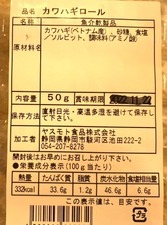 品名 カワハギロール
名称 魚介乾製品
カワハギ(ベトナム産)、砂糖、食塩
/ソルビット、調味料(アミノ酸)
内容量 50g 賞味期限 2022.11.22
保存方法 直射日光・高温多湿を避けて保存して
下さい。
加工者 ヤスモト食品株式会社
静岡県静岡市駿河区池田222-2
054-207-8278
開封後はお早めにお召し上がり下さい。
●栄養成分表(100g当たり)
熱量 たんぱく質 脂質 炭水化物 食塩相当量
332kcal 33.6g 1.2g 46.6g 6.6g
この表示値は、目安です。